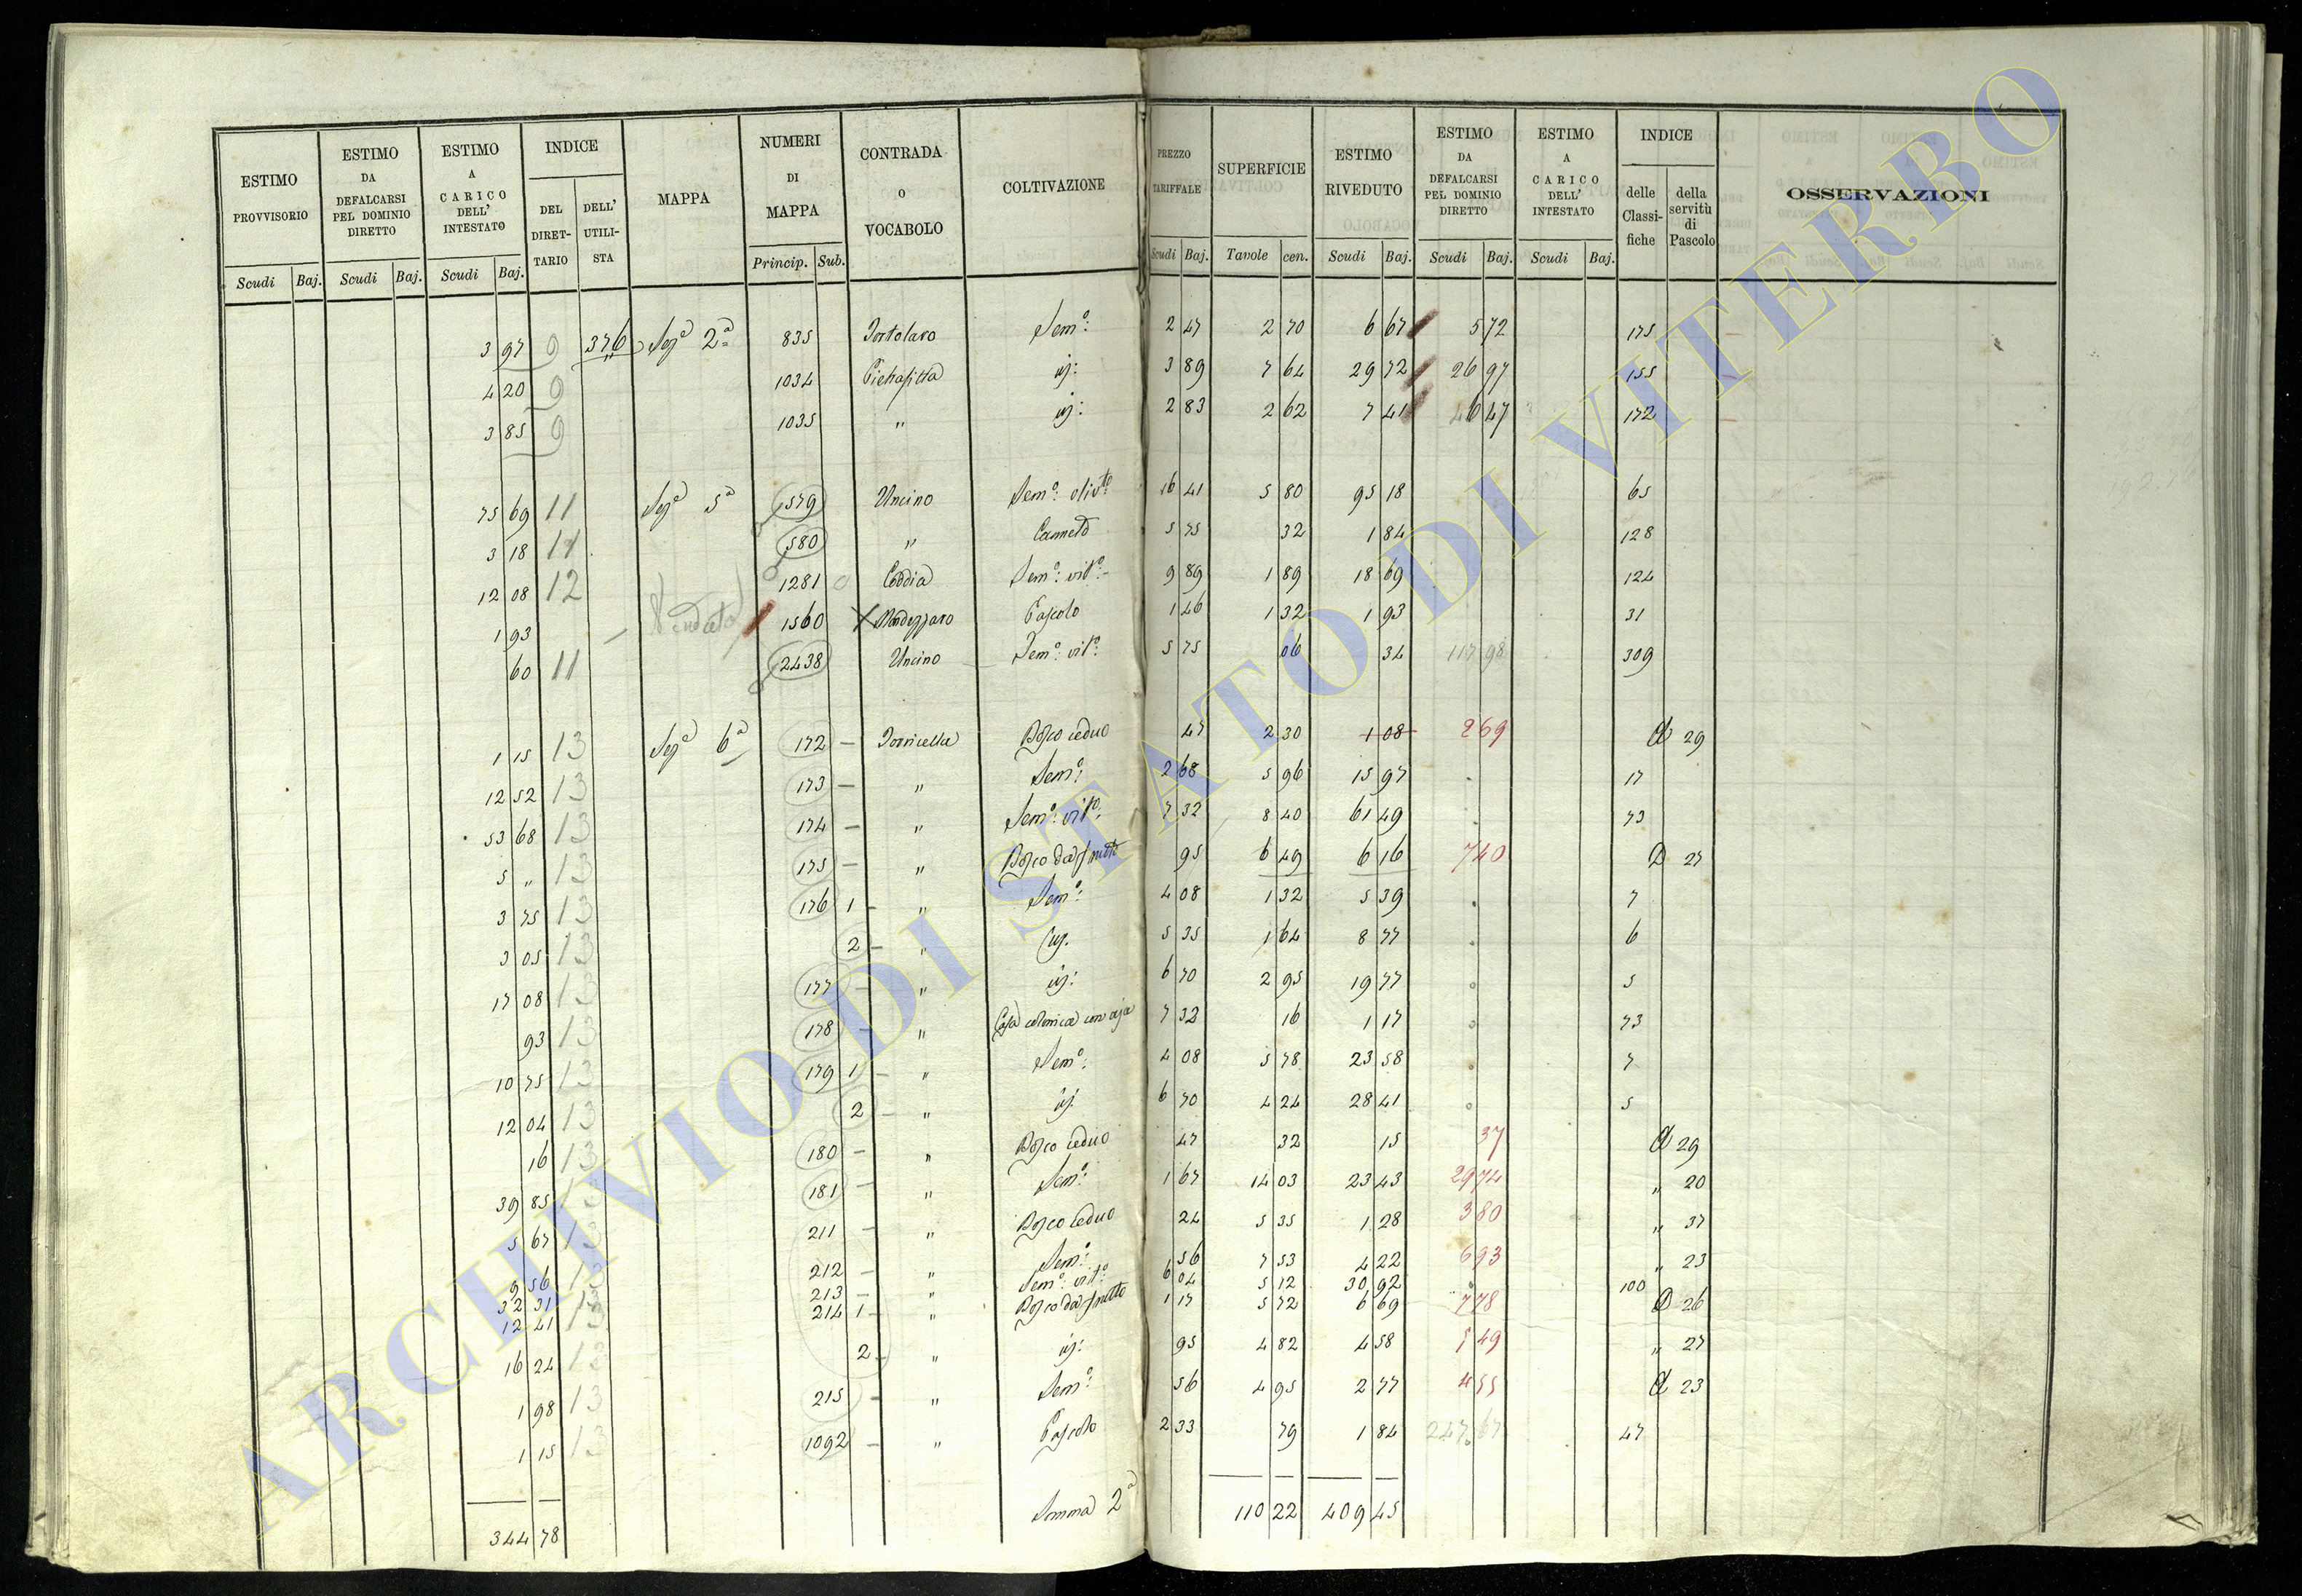 ESTIMO PROVVISORIO
ESTIMO DA DEFALCARSI PEL DOMINIO DIRETTO
ESTIMO A CARICO DELL' INTESTATO
INDICE
DEL DIRET-TARIO
DELL' UTILI-STA
MAPPA
NUMERI DI MAPPA
CONTRADA O VOCABOLO
COLTIVAZIONE
PREZZO TARIFFALE
SUPERFICIE
ESTIMO RIVEDUTO
ESTIMO DA DEFALCARSI PEL DOMINIO DIRETTO
ESTIMO A CARICO DELL' INTESTATO
INDICE
delle Classi-fiche
della servitù di Pascolo
OSSERVAZIONI
Scudi Baj. Scudi Baj. Scudi Baj. Princip. Sub. Scudi Baj. Tavole cen. Scudi Baj. Scudi Baj. Scudi Baj.
3 97 9 376 Segª 2ª 835 Sem°: 2 47 2 70 6 67 5 72 175
4 20 9 1034 id: 3 89 7 64 29 72 26 97 155
3 85 9 1035 " id: 2 83 2 62 7 41 6 47 172
75 69 11 Segª 5ª 579 Uncino Sem°: olivto 16 41 5 80 95 18 65
3 18 11 580 " Canneto 5 75 32 1 84 128
12 08 12 1281 Coddia Sem°: vit°: 9 89 1 89 18 69 124
1 93 1560 Pascolo 1 46 1 32 1 93 31
60 11 2438 Uncino Sem°: vit°: 5 75 06 34 117 98 309
1 15 13 Segª 6ª 172 Torricella Bosco ceduo 47 2 30 1 08 2 69 29
12 52 13 173 " Sem°: 2 68 5 96 15 97 17
53 68 13 174 " Sem°: vit°: 7 32 8 40 61 49 73
5 " 13 175 " Bosco da frutto 95 6 49 6 16 7 40 D 27
3 75 13 176 1 " Sem°: 4 08 1 32 5 39 7
3 05 13 2 " id. 5 35 1 64 8 77 6
17 08 13 177 " id: 6 70 2 95 19 77 5
93 13 178 " Casa colonica con aja 7 32 16 1 17 73
10 75 13 179 1 " Sem°: 4 08 5 78 23 58 7
12 04 13 2 " id. 6 70 4 24 28 41 5
16 13 180 " Bosco ceduo 47 32 15 37 29
39 85 13 181 " Sem°: 1 67 14 03 23 43 29 74 " 20
5 67 13 211 " Bosco ceduo 24 5 35 1 28 3 80 " 37
9 56 13 212 " Sem°: 56 7 53 4 22 6 93 " 23
32 31 13 213 " Sem°: vit°: 6 04 5 12 30 92 100
12 41 13 214 1 " Bosco da frutto 1 17 5 72 6 69 7 78 D 26
16 24 13 2 " id: 95 4 82 4 58 5 49 " 27
1 98 13 215 " Sem°: 56 4 95 2 77 4 55 23
1 15 13 1092 " Pascolo 2 33 79 1 84 247 67 47
344 78 Somma 2ª 110 22 409 45
ARCHIVIO DI STATO DI VITERBO